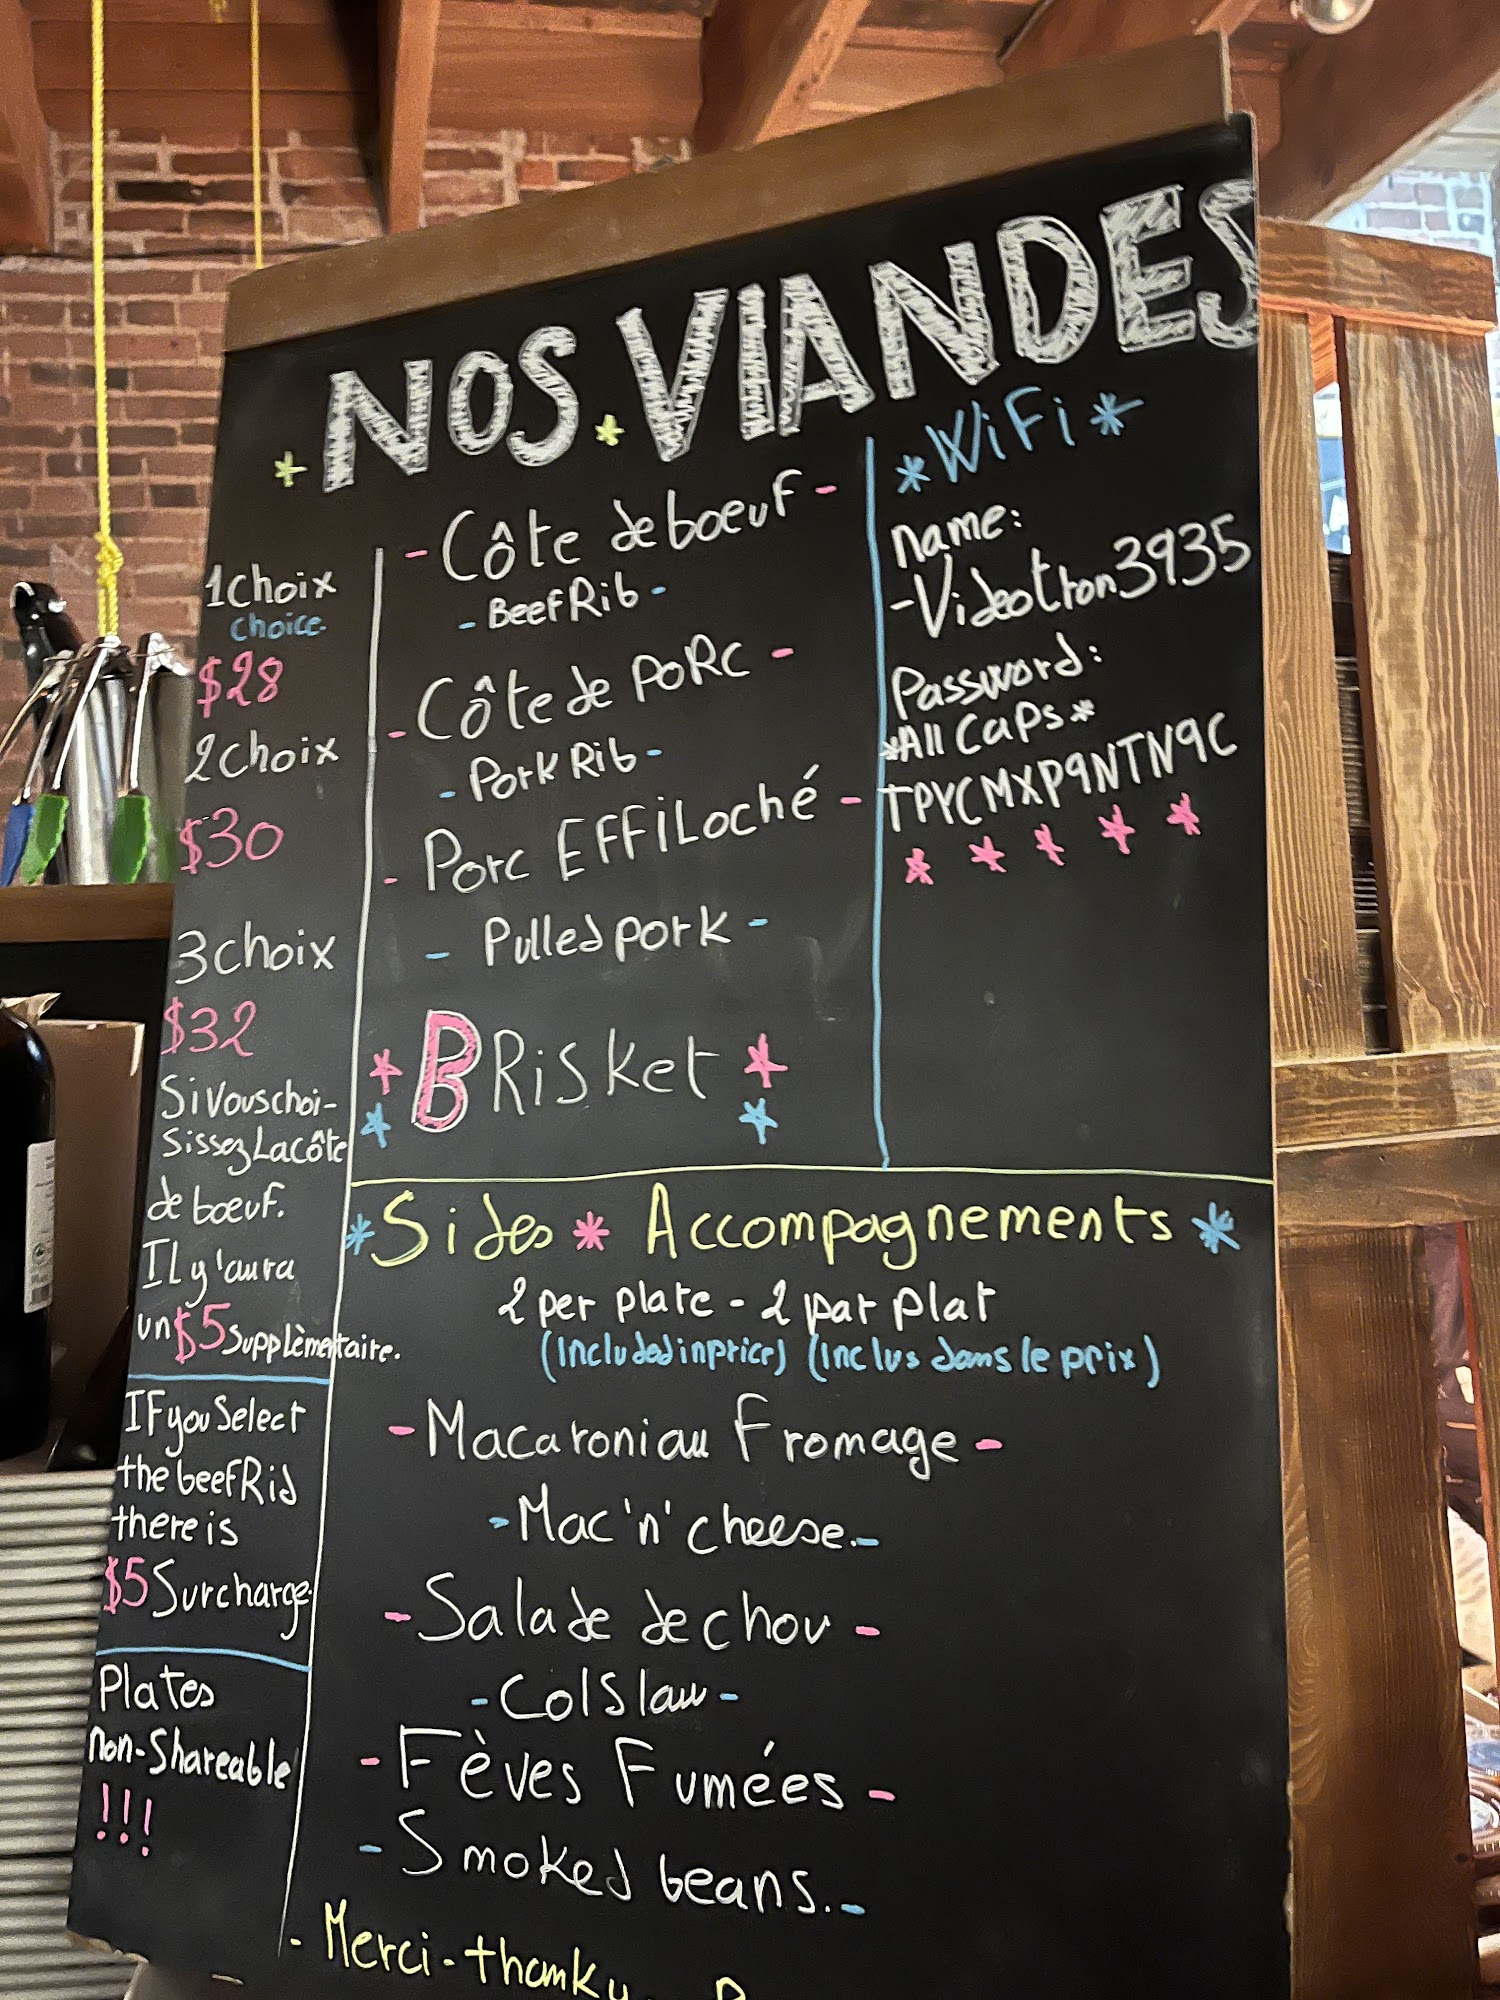 NOS VIANDES
1 choix
choice
$28
2 choix
$30
3 choix
$32
Si vous choi-
sissez La côte
de boeuf.
Il y'aura
un $5 supplèmentaire.
IF you Select
the beef Rib
there is
$5 Surcharge.
Plates
non-Shareable
!!!
- Côte de boeuf -
- Beef Rib -
- Côte de PoRc -
- Pork Rib -
- Porc EFFiLoché -
- Pulled pork -
* BRisket *
* WiFi *
name:
- Videotron3935
Password:
*All Caps*
TPYCMXP9NTN9C
* * * * *
* Sides * Accompagnements *
2 per plate - 2 par plat
(Included in price) (inclus dans le prix)
- Macaroni au Fromage -
- Mac 'n' cheese. -
- Salade de chou -
- ColSlaw -
- Fèves Fumées -
- Smoked beans. -
- Merci - thank